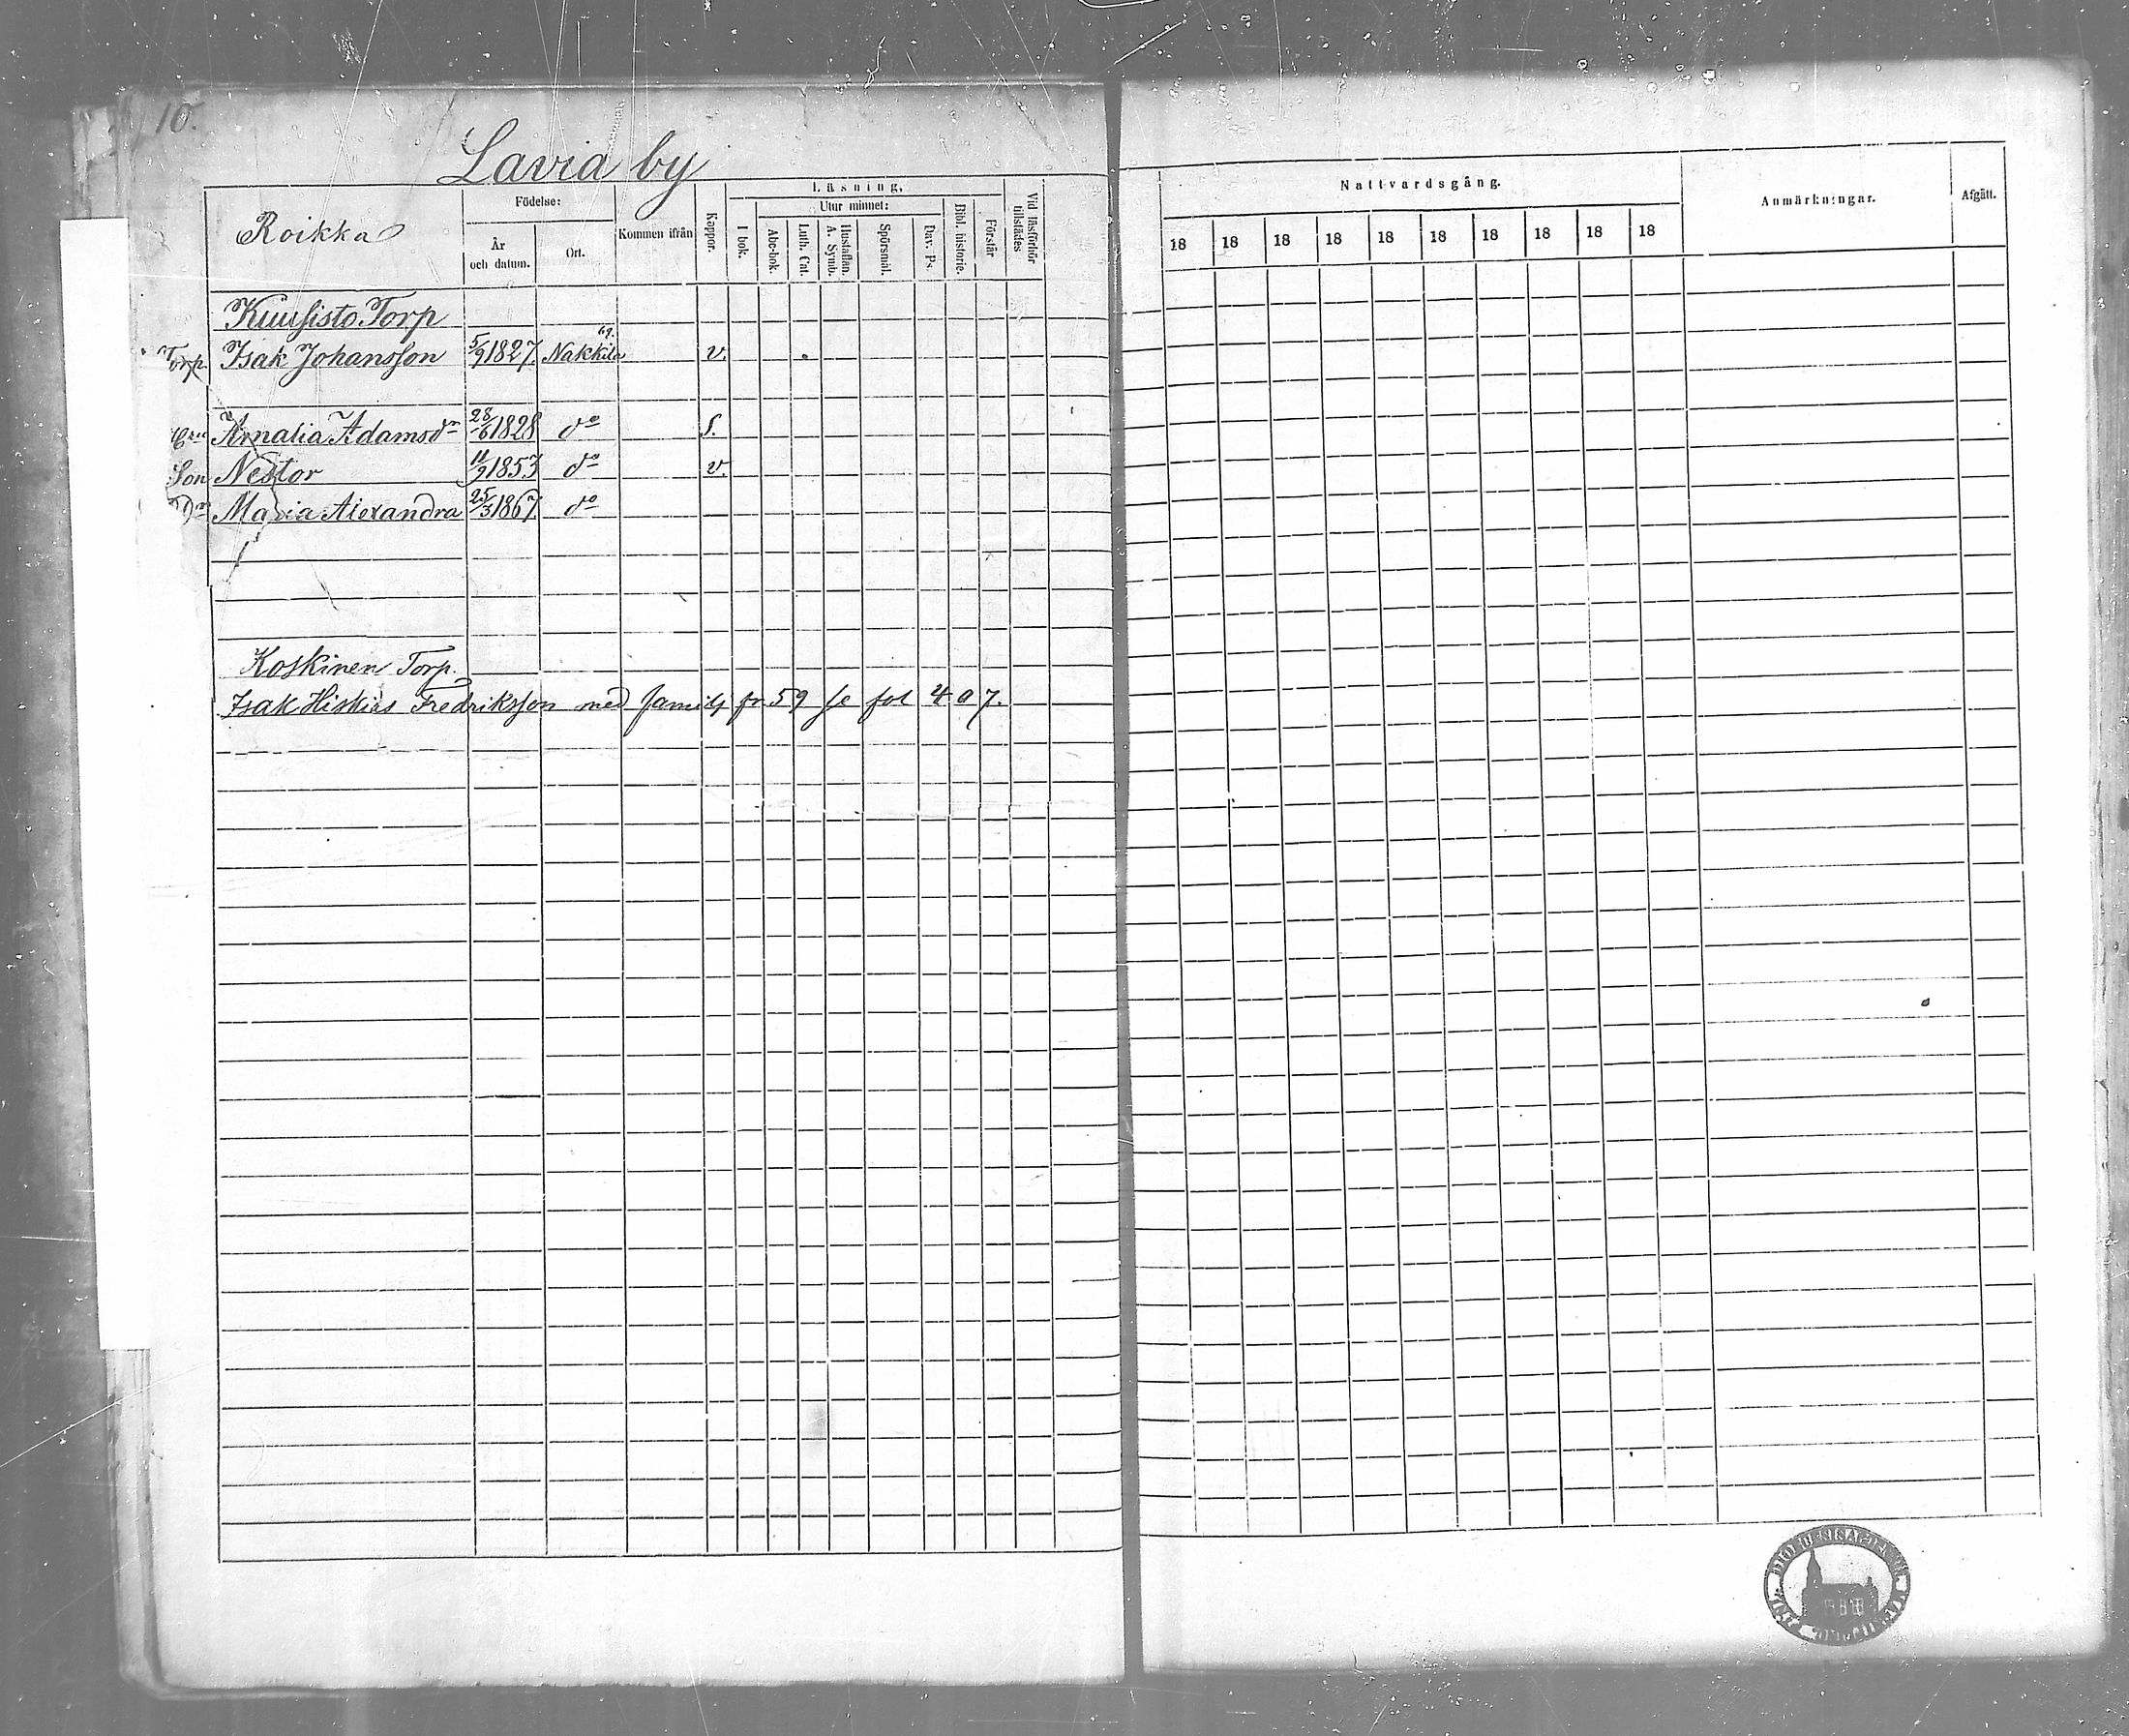 10.
Lavia by
Roikka
Födelse:
År och datum.
Ort.
Kommen ifrån
Koppor.
Läsning.
I bok.
Utur minnet:
Abc-bok.
Luth. Cat.
Hustaflan. A. Symb.
Spörsmål.
Dav. Ps.
Bibl. historie.
Förstår
Vid läsförhör tillstädes
Nattvardsgång.
18 18 18 18 18 18 18 18 18 18
Anmärkningar.
Afgått.
Kuusisto Torp
Torp. Isak Johansson 5/9 1827. Nakkila 69. v.
Amalia Adamsdr 28/6 1828 do s.
Son Nestor 11/9 1853 do v.
Dr Maria Alexandra 25/3 1867. do
Koskinen Torp.
Isak Hiskias Fredriksson med familj fr 59 se fol 407.